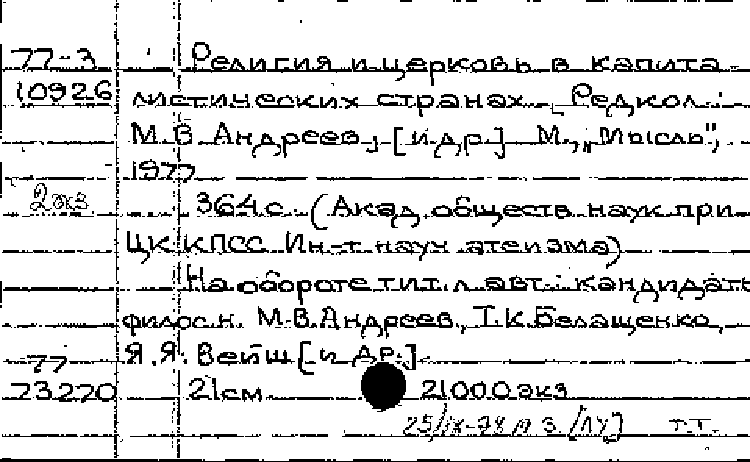 77-3 Религия и церковь в капита-
10926 листических странах. Редкол.:
М.В. Андреев, [и др.] М., "Мысль",
1977
2 экз. 364 с. (Акад. обществ. наук при
ЦК КПСС. Ин-т науч. атеизма)
На обороте тит. л. авт.: кандидаты
филос. н. М.В. Андреев, Т.К. Белащенко,
77 Я.Я. Вейш [и др.].
73270 21 см. 21000 экз
т.т.